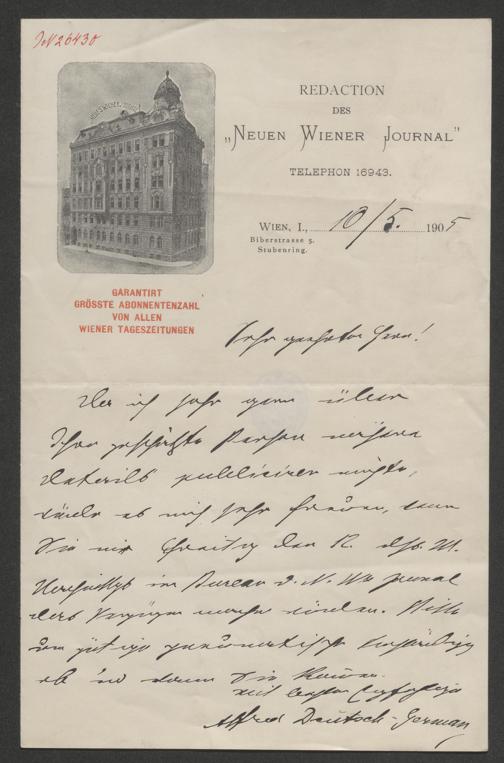 JN 26430
NEUES WIENER JOURNAL
REDACTION
DES
„NEUEN WIENER JOURNAL"
TELEPHON 16943.
WIEN, I., 10/5. 1905
Biberstrasse 5.
Stubenring.
GARANTIRT
GRÖSSTE ABONNENTENZAHL
VON ALLEN
WIENER TAGESZEITUNGEN
Sehr geehrter Herr!
Da ich sehr gern über
Ihre geschätzte Person nähere
Details publiciren möchte,
würde es mich sehr freuen, wenn
Sie mir Freitag den 12. dss. M.
im Bureau d. N. W. Journal
das Vergnügen machen würden. Bitte
um gütige pneumatische Verständigung
ob und wann Sie kommen.
Mit besten Empfehlungen
Alfred Deutsch-German